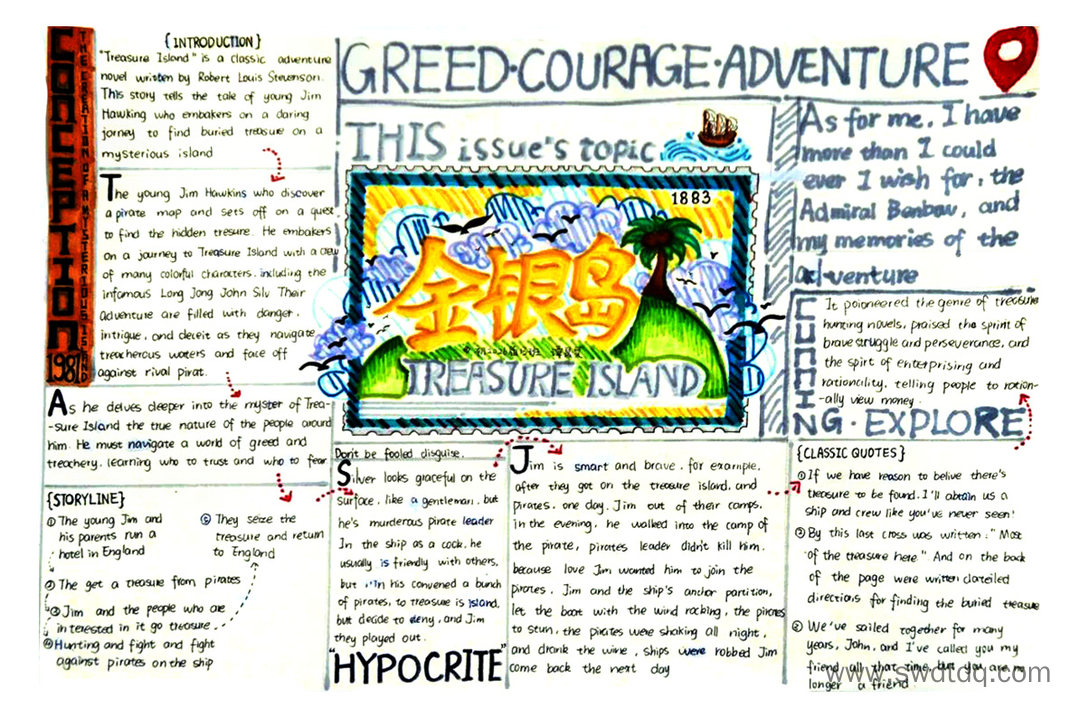 CONCEPTION
THE CREATION OF A MYSTERIOUS ISLAND
1981
{INTRODUCTION}
"Treasure Island" is a classic adventure
novel written by Robert Louis Stevenson.
This story tells the tale of young Jim
Hawking who embakers on a daring
jorney to find buried treasure on a
mysterious island
The young Jim Hawkins who discover
a pirate map and sets off on a quest
to find the hidden tresure. He embakers
on a journey to Treasure Island with a crew
of many colorful characters. including the
infamous Long Jong John Silv Their
adventure are filled with danger.
intrigue, and deceit as they navigate
treacherous waters and face off
against rival pirat.
As he delves deeper into the myster of Trea-
-sure Island the true nature of the people around
him. He must navigate a world of greed and
treachery. learning who to trust and who to fear
{STORYLINE}
① The young Jim and
his parents run a
hotel in England
② The get a treasure from pirates
③ Jim and the people who are
in terested in it go treasure.
④ Hunting and fight and fight
against pirates on the ship
⑤ They seize the
treasure and return
to England
GREED·COURAGE·ADVENTURE
THIS issue's topic
1883
金银岛
TREASURE ISLAND
Don't be fooled disguise.
Silver looks graceful on the
surface, like a gentleman, but
he's murderous pirate leader
In the ship as a cook, he
usually is friendly with others,
but in his convened a bunch
of pirates, to treasure is island,
but decide to deny, and Jim
they played out.
"HYPOCRITE"
Jim is smart and brave. for example,
after they got on the treasure island, and
pirates, one day, Jim out of their camps,
in the evening, he walked into the camp of
the pirate, pirates leader didn't kill him.
because love Jim wanted him to join the
pirates. Jim and the ship's anchor partition,
let the boat with the wind rocking, the pirates
to stun, the pirates were shaking all night,
and drank the wine, ships were robbed Jim
come back the next day
As for me, I have
more than I could
ever I wish for, the
Admiral Benbow, and
my memories of the
adventure
It poioneered the genre of treasure
hunting novels, praised the sprint of
brave struggle and perseverance, and
the spirt of enterprising and
rationality, telling people to ration-
-ally view money.
CUNNING·EXPLORE
{CLASSIC QUOTES}
① If we have reason to belive there's
treasure to be found, I'll abtain us a
ship and crew like you've never seen!
② By this last cross was written: "Most
of the treasure here." And on the back
of the page were written
directions for finding the buried treasure
We've sailed together for many
years, John, and I've called you my
friend all that time, but you are no
longer a friend.
www.swdtdq.com